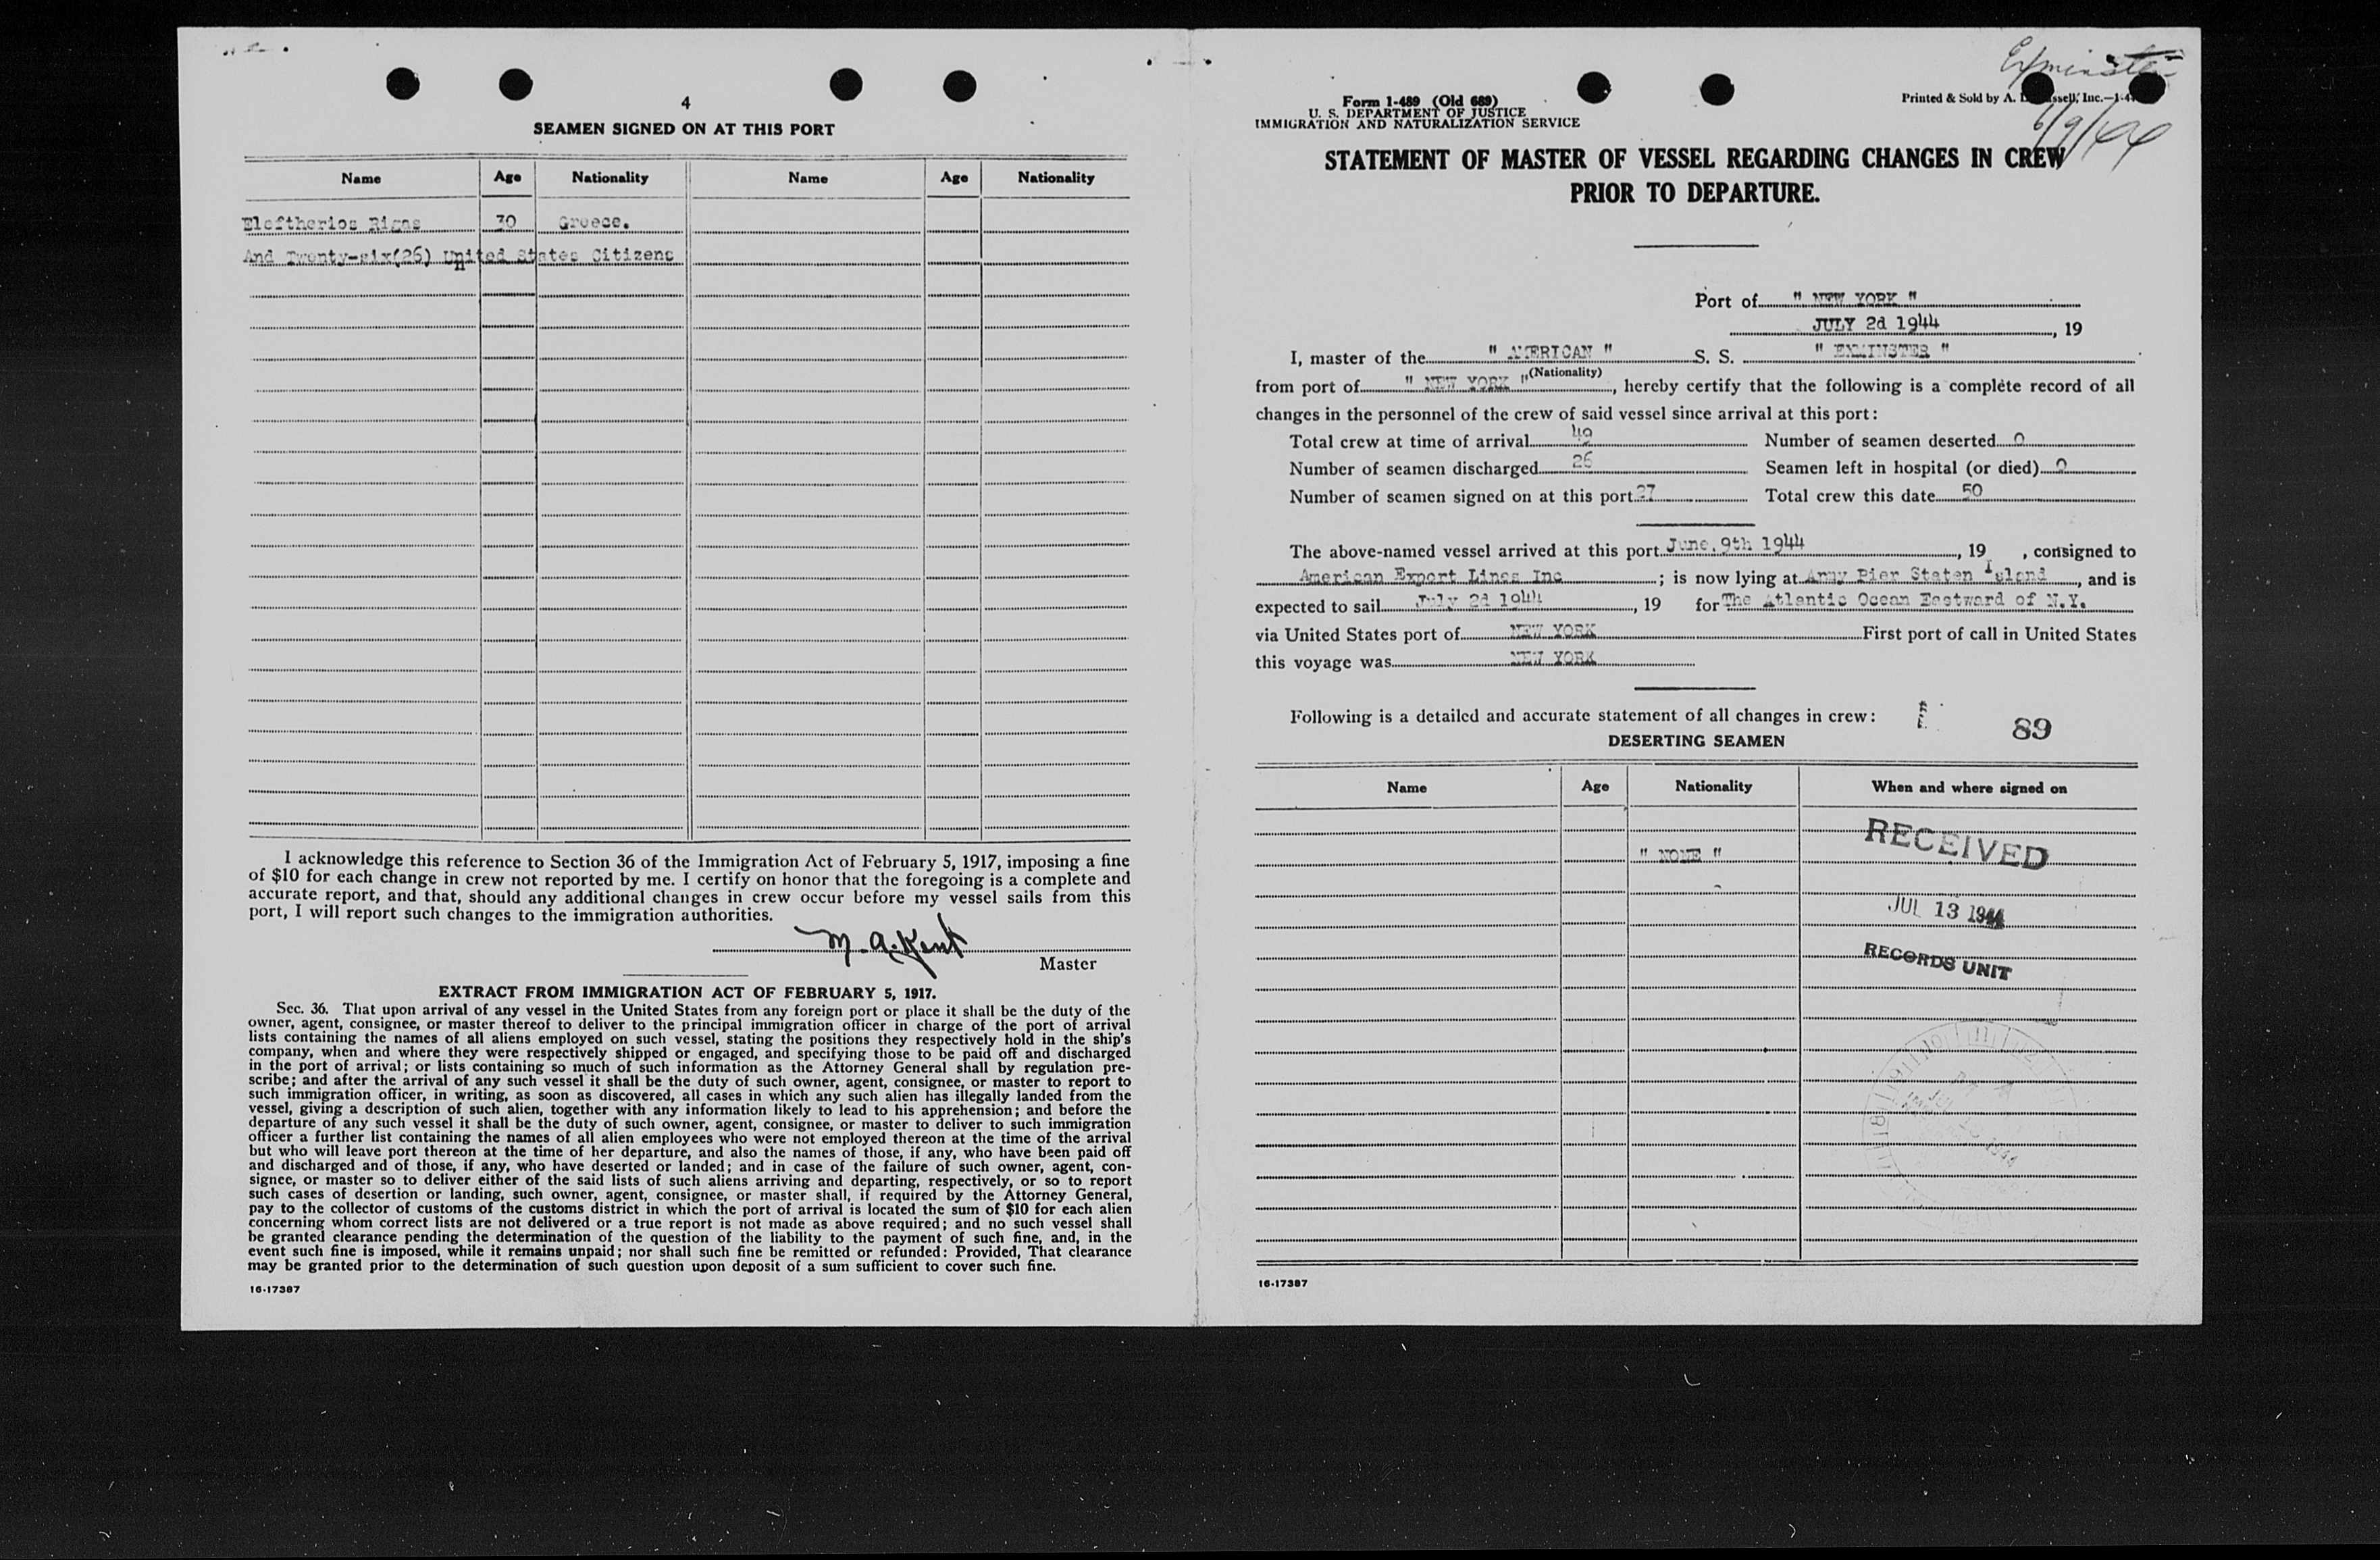 4
SEAMEN SIGNED ON AT THIS PORT
Name Age Nationality Name Age Nationality
Eleftherios Rigas 30 Greece.
And Twenty-six(26) United States Citizens
I acknowledge this reference to Section 36 of the Immigration Act of February 5, 1917, imposing a fine
of $10 for each change in crew not reported by me. I certify on honor that the foregoing is a complete and
accurate report, and that, should any additional changes in crew occur before my vessel sails from this
port, I will report such changes to the immigration authorities.
M. A. Kent
Master
EXTRACT FROM IMMIGRATION ACT OF FEBRUARY 5, 1917.
Sec. 36. That upon arrival of any vessel in the United States from any foreign port or place it shall be the duty of the
owner, agent, consignee, or master thereof to deliver to the principal immigration officer in charge of the port of arrival
lists containing the names of all aliens employed on such vessel, stating the positions they respectively hold in the ship's
company, when and where they were respectively shipped or engaged, and specifying those to be paid off and discharged
in the port of arrival; or lists containing so much of such information as the Attorney General shall by regulation pre-
scribe; and after the arrival of any such vessel it shall be the duty of such owner, agent, consignee, or master to report to
such immigration officer, in writing, as soon as discovered, all cases in which any such alien has illegally landed from the
vessel, giving a description of such alien, together with any information likely to lead to his apprehension; and before the
departure of any such vessel it shall be the duty of such owner, agent, consignee, or master to deliver to such immigration
officer a further list containing the names of all alien employees who were not employed thereon at the time of the arrival
but who will leave port thereon at the time of her departure, and also the names of those, if any, who have been paid off
and discharged and of those, if any, who have deserted or landed; and in case of the failure of such owner, agent, con-
signee, or master so to deliver either of the said lists of such aliens arriving and departing, respectively, or so to report
such cases of desertion or landing, such owner, agent, consignee, or master shall, if required by the Attorney General,
pay to the collector of customs of the customs district in which the port of arrival is located the sum of $10 for each alien
concerning whom correct lists are not delivered or a true report is not made as above required; and no such vessel shall
be granted clearance pending the determination of the question of the liability to the payment of such fine, and, in the
event such fine is imposed, while it remains unpaid; nor shall such fine be remitted or refunded: Provided, That clearance
may be granted prior to the determination of such question upon deposit of a sum sufficient to cover such fine.
16-17387
Exminster
6/9/44
Form I-489 (Old 689)
U. S. DEPARTMENT OF JUSTICE
IMMIGRATION AND NATURALIZATION SERVICE
Printed & Sold by A. Inc.
STATEMENT OF MASTER OF VESSEL REGARDING CHANGES IN CREW
PRIOR TO DEPARTURE.
Port of " NEW YORK "
JULY 2d 1944 , 19
I, master of the " AMERICAN " S. S. " EXMINSTER "
(Nationality)
from port of " NEW YORK " , hereby certify that the following is a complete record of all
changes in the personnel of the crew of said vessel since arrival at this port:
Total crew at time of arrival 49 Number of seamen deserted 0
Number of seamen discharged 26 Seamen left in hospital (or died) 0
Number of seamen signed on at this port 27 Total crew this date 50
The above-named vessel arrived at this port June. 9th 1944 , 19 , consigned to
American Export Lines Inc ; is now lying at Army Pier Staten Island , and is
expected to sail July 2d 1944 , 19 for The Atlantic Ocean Eastward of N.Y.
via United States port of NEW YORK First port of call in United States
this voyage was NEW YORK
Following is a detailed and accurate statement of all changes in crew:
89
DESERTING SEAMEN
Name Age Nationality When and where signed on
" NONE "
RECEIVED
JUL 13 1944
RECORDS UNIT
16-17387